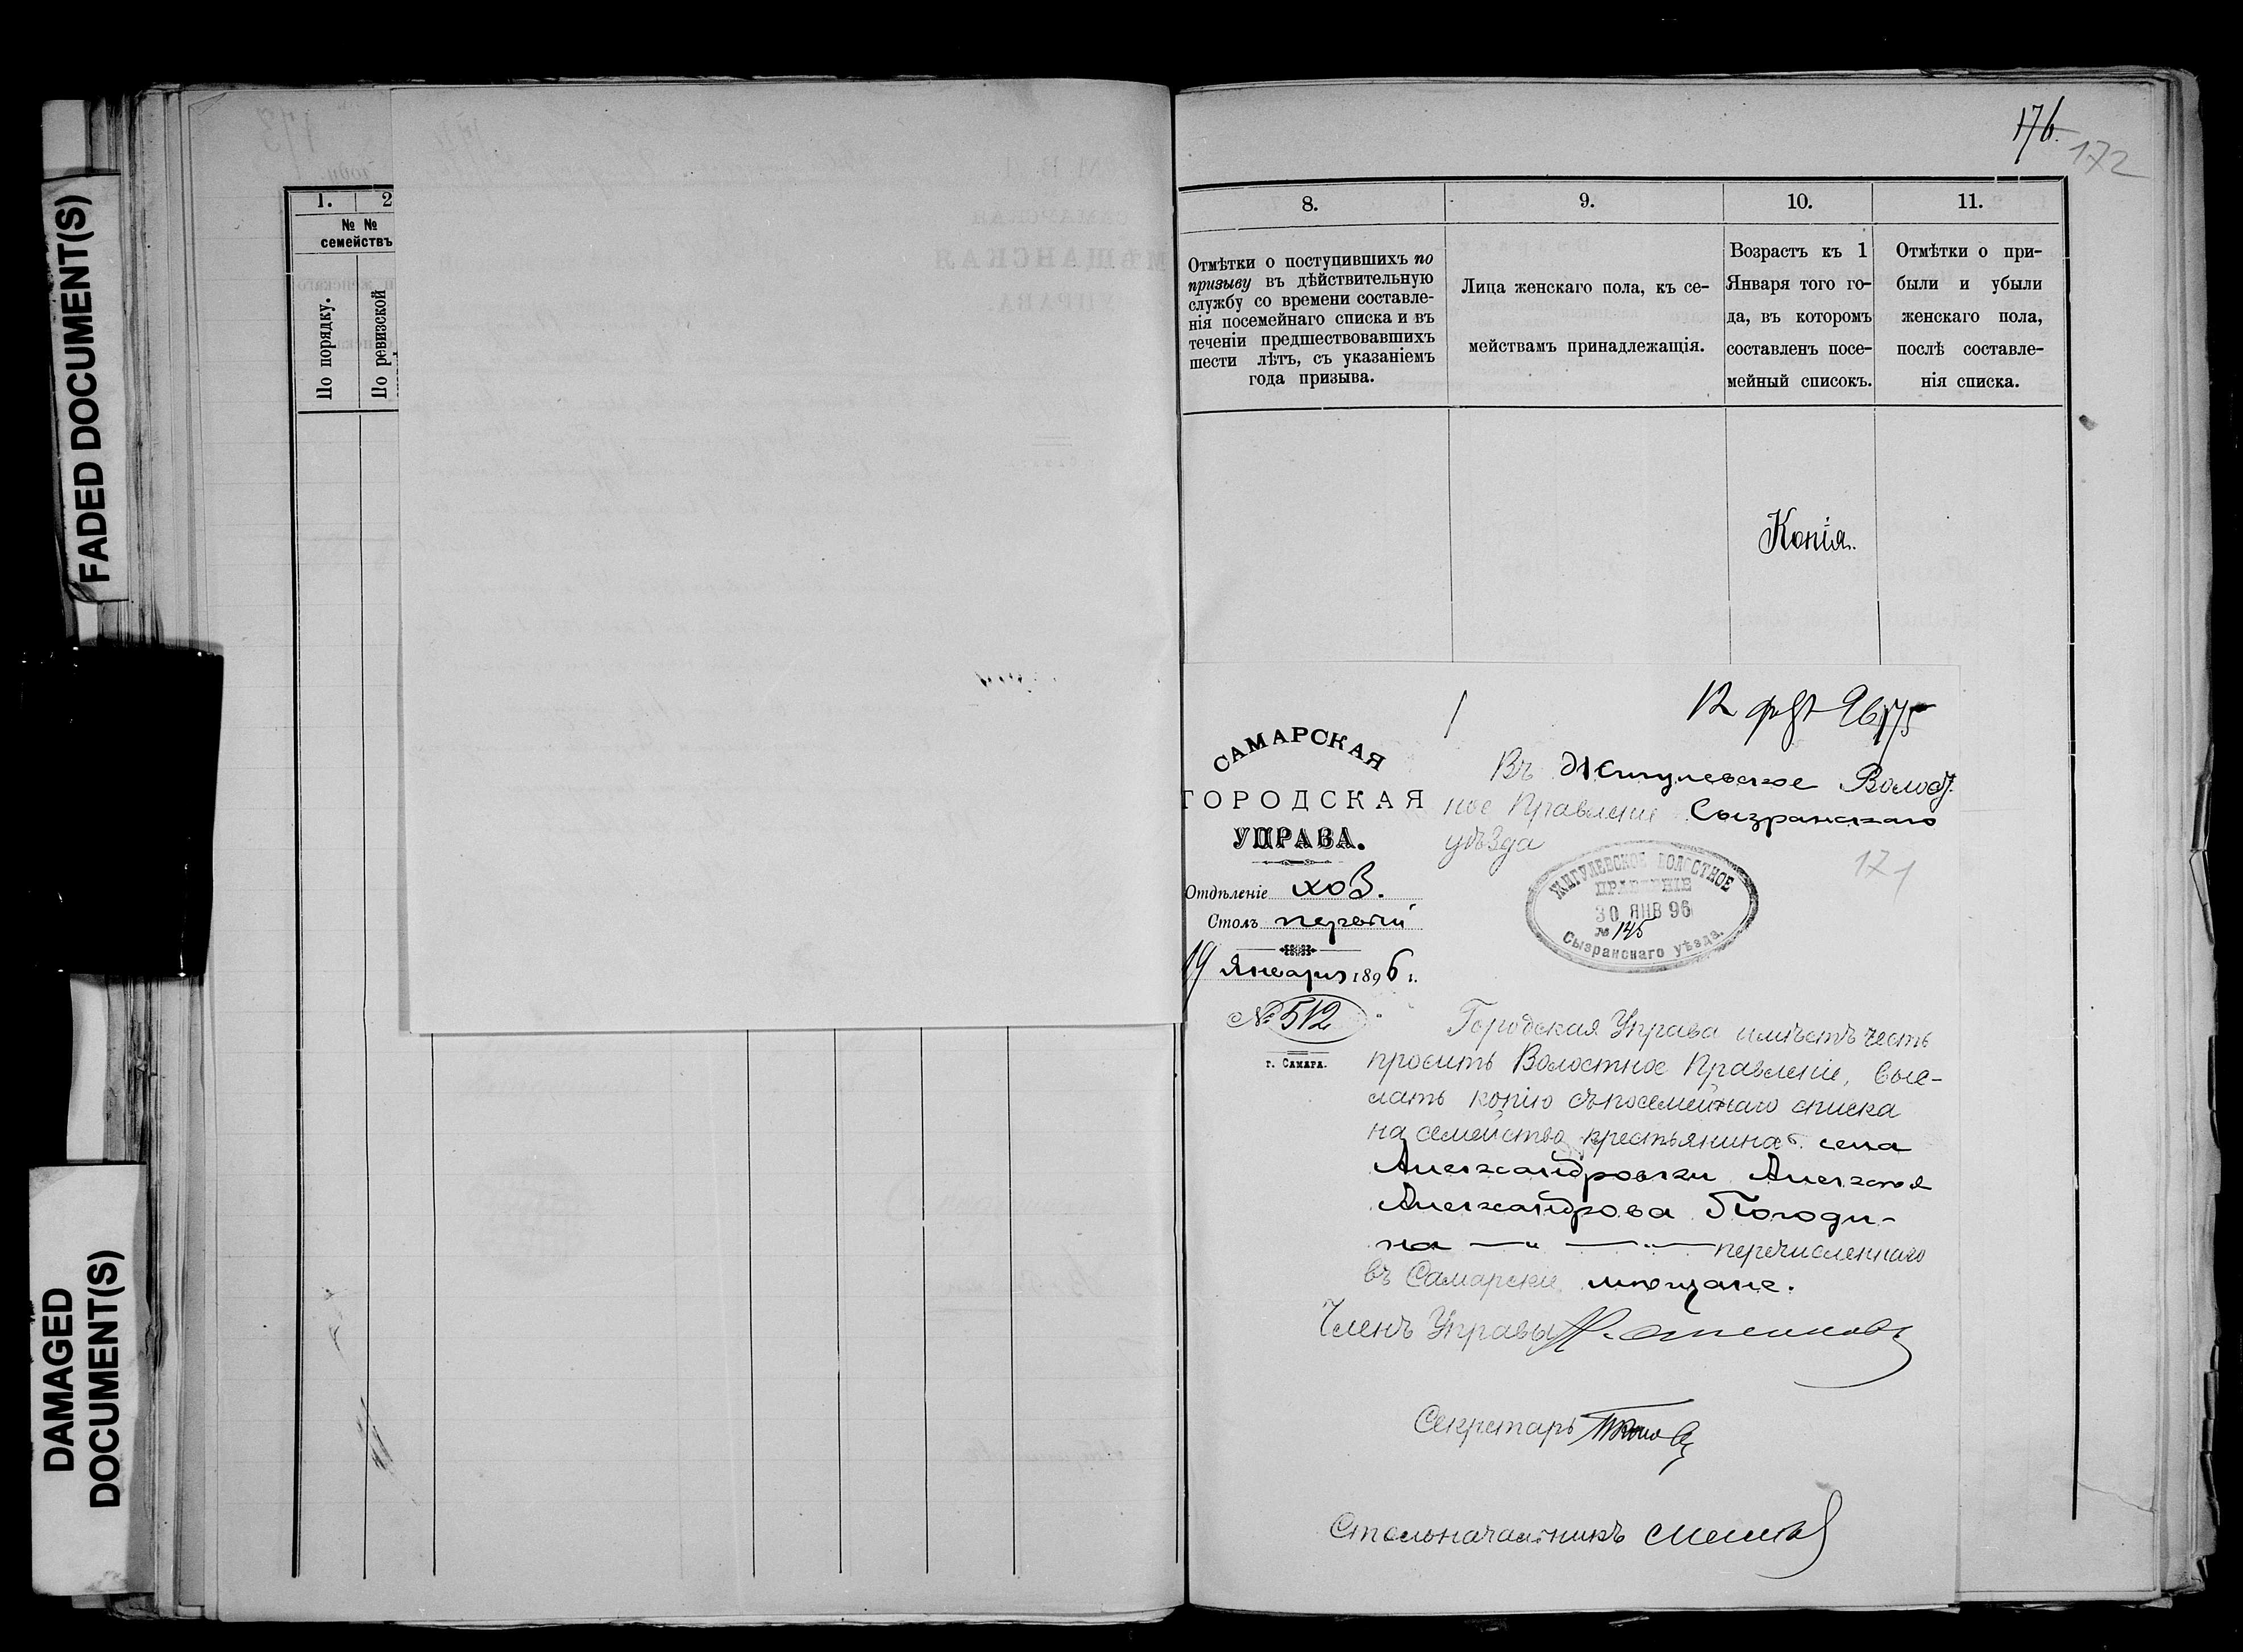 FADED DOCUMENT(S)
DAMAGED
DOCUMENT(S)
1. 2
№ №
семействъ
По порядку.
По ревизской
176.
172
8. 9. 10. 11.
Отмѣтки о поступившихъ по
призыву въ дѣйствительную
службу со времени составле-
нія посемейнаго списка и въ
теченіи предшествовавшихъ
шести лѣтъ, съ указаніемъ
года призыва.
Лица женскаго пола, къ се-
мействамъ принадлежащія.
Возрастъ къ 1
Января того го-
да, въ которомъ
составленъ посе-
мейный списокъ.
Отмѣтки о при-
были и убыли
женскаго пола,
послѣ составле-
нія списка.
Копія.
175
САМАРСКАЯ
ГОРОДСКАЯ
УПРАВА.
Отдѣленіе хоз.
Столъ первый
19 Января 1896 г.
№ 512
г. САМАРА.
Въ Жигулевское Волост
ное Правленіе Сызранскаго
уѣзда
171
ЖИГУЛЕВСКОЕ ВОЛОСТНОЕ
ПРАВЛЕНІЕ
30 ЯНВ 96
№ 145
Сызранскаго уѣзда.
Городская Управа имѣетъ честь
просить Волостное Правленіе, выс-
лать копію съ посемейнаго списка
на семейство крестьянина с. села
Александровки Алексѣя
Александрова Погоди-
на — " — " — перечисленнаго
въ Самарскіе мѣщане.
Членъ Управы
Секретарь
Столоначальникъ